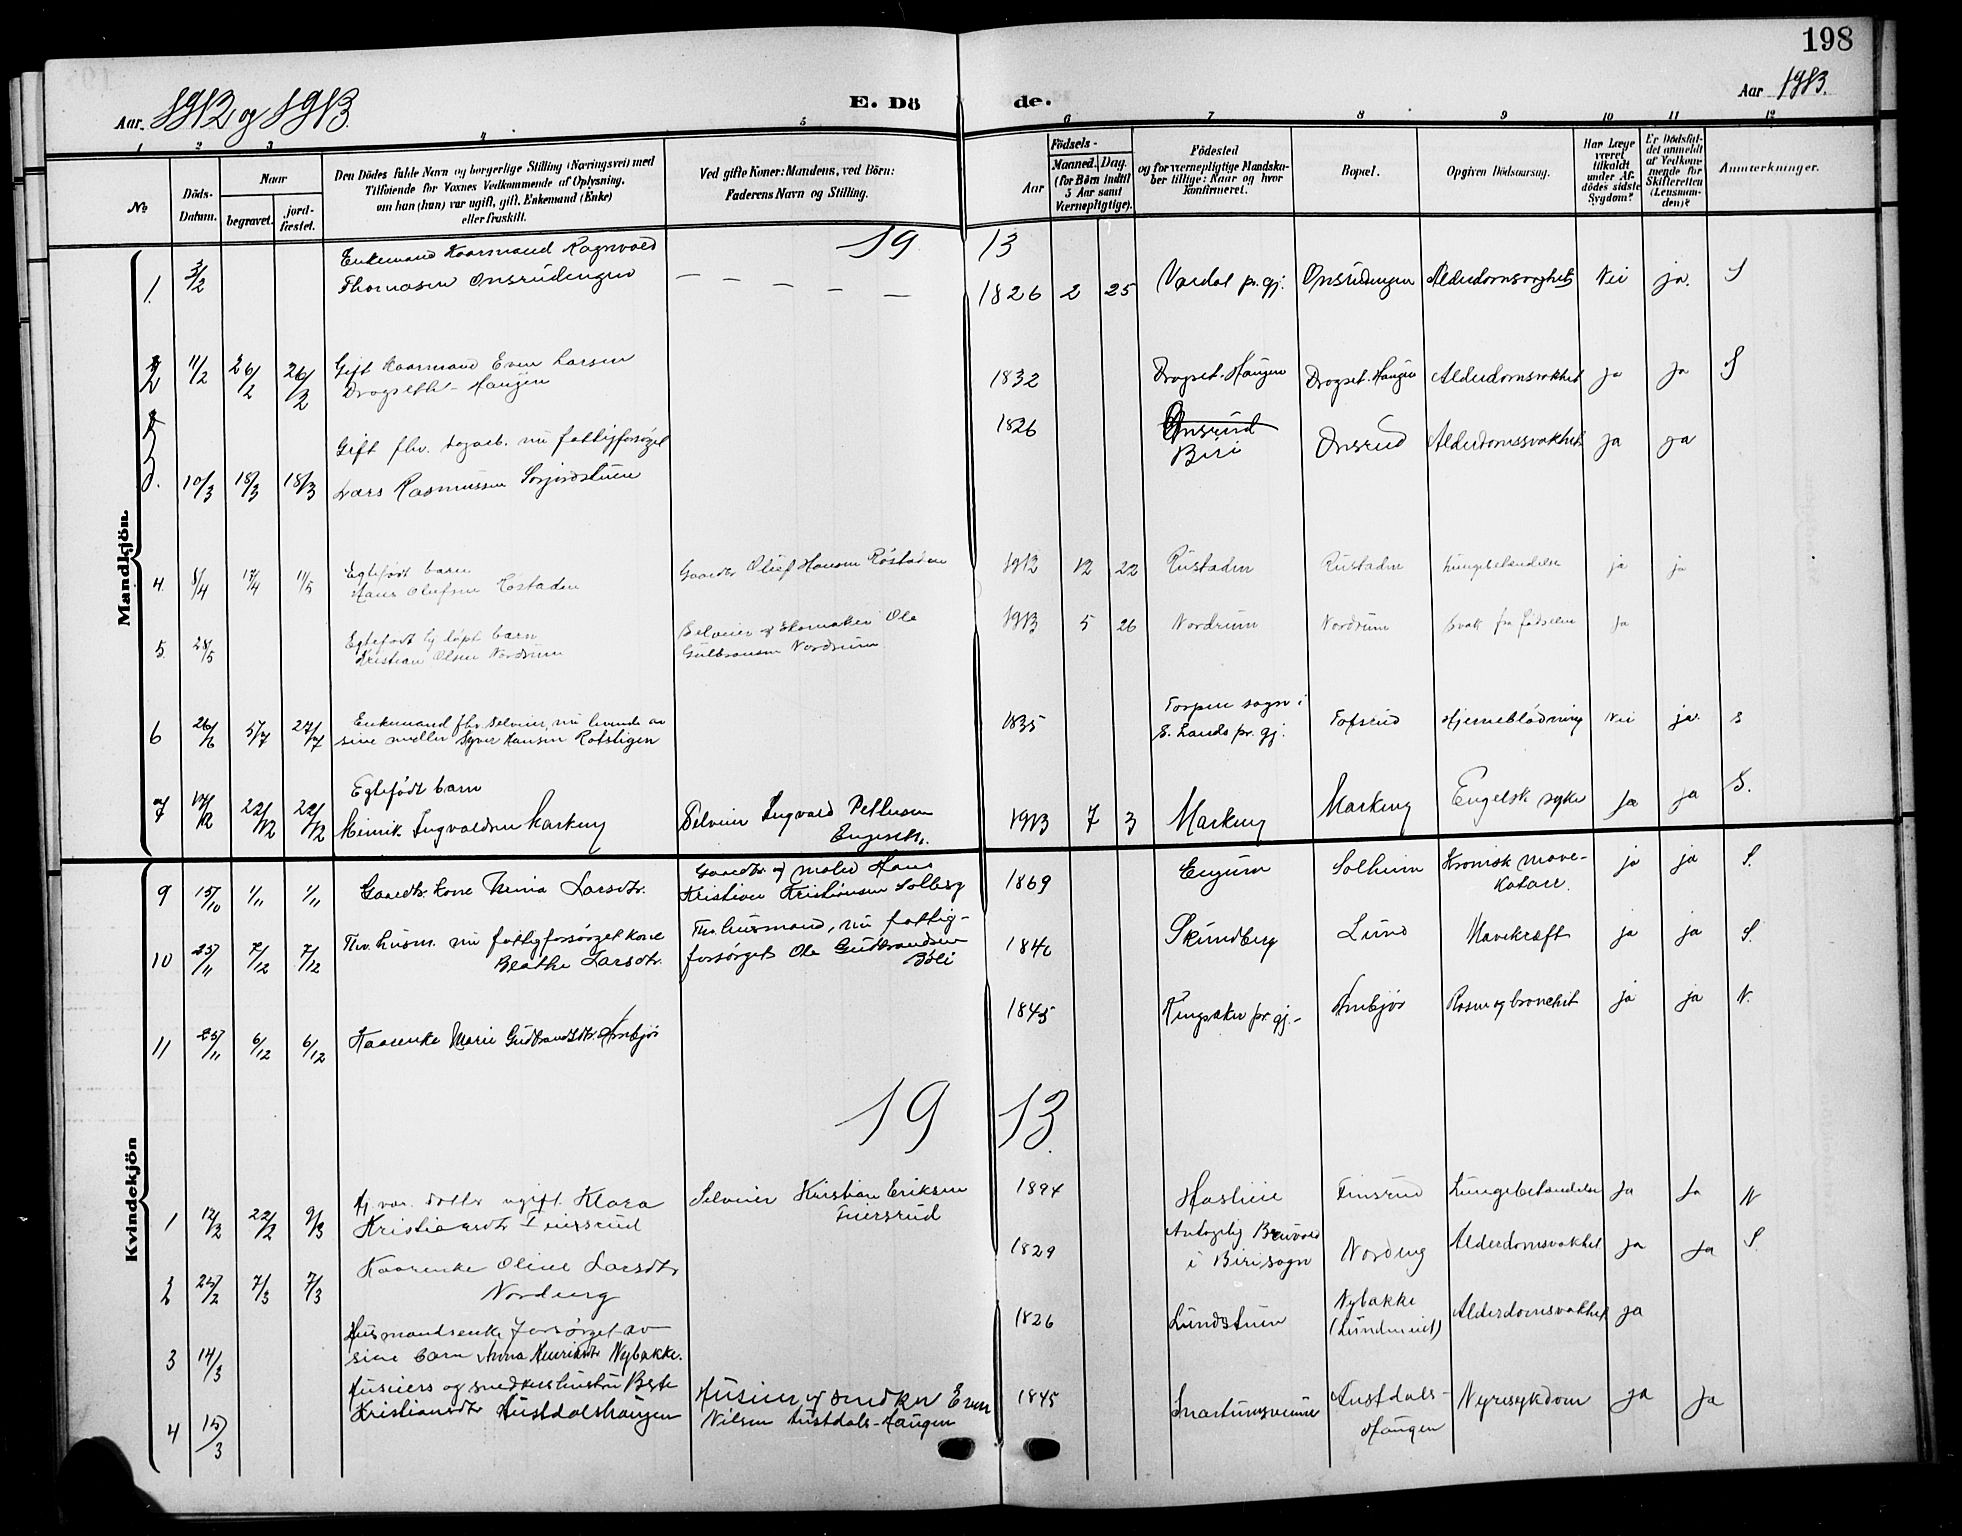 198
Aar 1912 og 1913.
E. Döde.
Aar 1913.
1 2 3 4 5 6 7 8 9 10 11 12
No
Döds-Datum.
Naar
begravet.
jord-fæstet.
Den Dödes fulde Navn og borgerlige Stilling (Næringsvei) med
Tilföiende for Voxnes Vedkommende af Oplysning,
om han (hun) var ugift, gift, Enkemand (Enke)
eller fraskilt.
Ved gifte Koner: Mandens, ved Börn:
Faderens Navn og Stilling.
Födsels-
Aar
Maaned.
Dag
(for Börn indtil
3 Aar samt
Værnepligtige).
Födested
og for værnepligtige Mandska-
ber tillige: Naar og hvor
konfirmeret.
Bopæl.
Opgiven Dödsaarsag.
Har Læge
været
tilkaldt
under Af-
dödes sidste
Sygdom?
Er Dödsfal-
det anmeldt
af Vedkom-
mende for
Skifteretten
(Lensman-
den)?
Anmerkninger.
Mandkjön.
1913
1. 3/2 Enkemand Kaarmand Ragnvald
Thomasen Onsrudengen — — — — — 1826 2 25 Vardal pr.gj. Onsrudengen Alderdomssvaghet Nei ja. S
2 11/2 26/2 26/2 Gift Kaarmand Even Larsen
Drogseth-Haugen 1832 Drogset-Haugen Drogset-Haugen Alderdomsvakhet ja ja S
3. 10/3 18/3 18/3 Gift fhv. dagarb. nu fattigforsørget
Lars Rasmussen 1826 Onsrud
Biri Onsrud Alderdomssvakhet ja ja
4. 8/4 17/4 11/5 Egtefødt barn
Hans Olufsen Røstaden Gaardbr Oluf Hansen Røstaden 1912 12 22 Rustaden Rustaden Lungebetændelse ja ja
5. 28/5 Egtefødt barn
Kristian Olsen Nordrum Selveier og Skomaker Ole
Gulbransen Nordrum 1913 5 26 Nordrum Nordrum svak fra fødselen ja
6 26/6 5/7 27/7 Enkemand fhv. Selveier, nu levende av
sine midler Syver Hansen 1835 Torpen sogn i
S. Lands pr. gj. Fossrud Hjerneblødning Nei ja. S
7 17/12 22/12 22/12 Egtefødt barn
Henrik Ingvaldsen Markeng Selveier Ingvald Pettersen
1913 7 3 Markeng Markeng Engelsk syke Ja ja S.
Kvindekjön
9 15/10 1/11 1/11 Gaardbr. kone Larsdtr. Gaardbr. og maler Hans
Kristian Kristiansen Solberg 1869 Engum Solheim Kronisk mave-
katarr. ja ja S.
10 25/11 7/12 7/12 Fhv. husm. nu fattigforsørget kone
Beathe Larsdtr. Fhv. husmand, nu fattig-
forsørget Ole Gudbrandsen
1846 Skundberg Lund Mavekræft ja ja S.
11 25/11 6/12 6/12 Kaarenke Marie Gudbrandsdtr. Arnbjør 1845 Ringsaker pr.gj.- Arnbjør Rosen og bronchit ja ja N.
1913.
1 12/2 22/2 9/3 Hj.vær. datter ugift Klara
Kristiansdtr Finsrud Selveier Kristian Eriksen
Finsrud 1894 Haslien Finsrud Lungebetændelse ja Ja N
2 25/2 7/3 7/3 Kaarenke Oline Larsdtr
Nordeng 1829 Antagelig
i Biri sogn Nordeng Alderdomsvakhet ja ja S.
3 14/3 Husmandsenke forsørget av
sine barn Anna Henriksdtr Nybakke. 1826 Lundstuen Nybakke
Alderdomsvakhet ja
4 15/3 Huseiers og snedkers hustru
Kristiansdtr Austdalshaugen Huseier og snedker Even
Nilsen Austdals-Haugen 1845 Austdals-
Haugen Nyresykdom ja ja